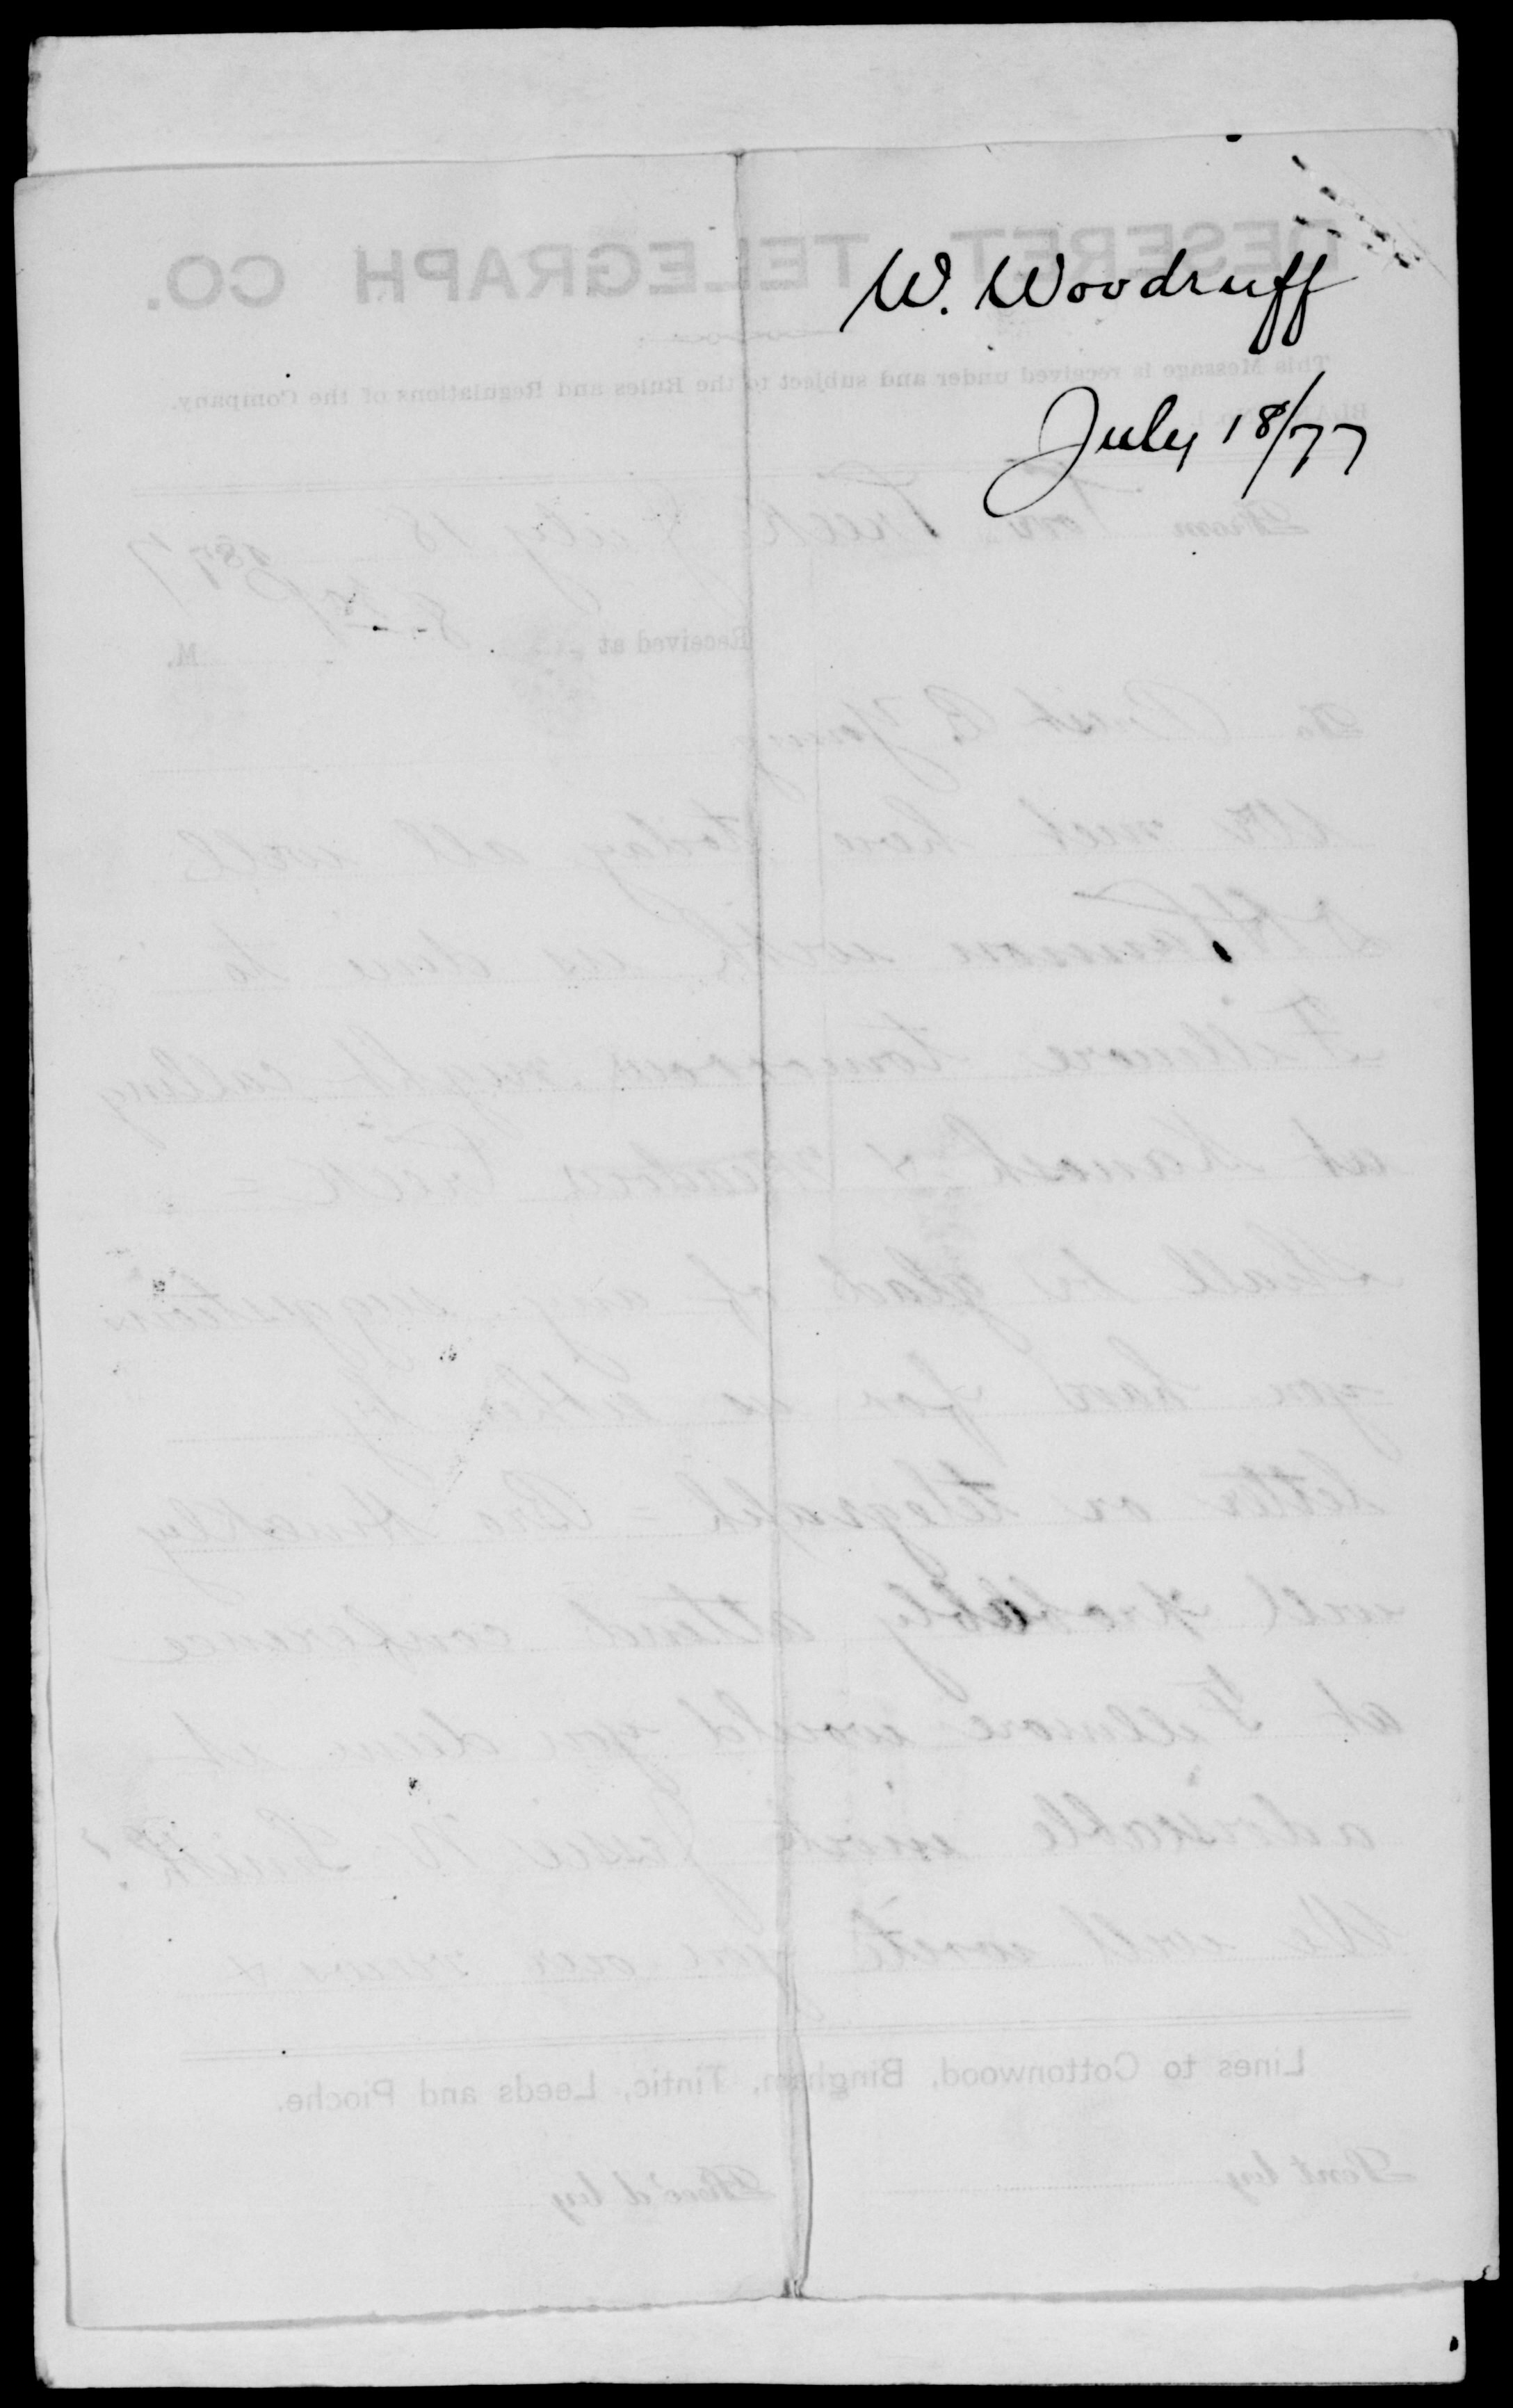 W. Woodruff
July 18/77
DESERET TELEGRAPH CO.
This Message is received under and subject to the Rules and Regulations of the Company.
From Cove Creek July 18 1877
Received at 8 M.
To Prest B. Young
We meet here today all well
Hanson with us drive to
Fillmore tomorrow night calling
at Kanosh & Meadow Creek =
Shall be glad of any suggestions
you have for us either by
letter or telegraph = Bro Hinckley
will probably attend conference
at Fillmore would you deem it
adviseable invite Jesse N. Smith?
We will write you our views &
Lines to Cottonwood, Bingham, Tintic, Leeds and Pioche.
Sent by
Rec'd by